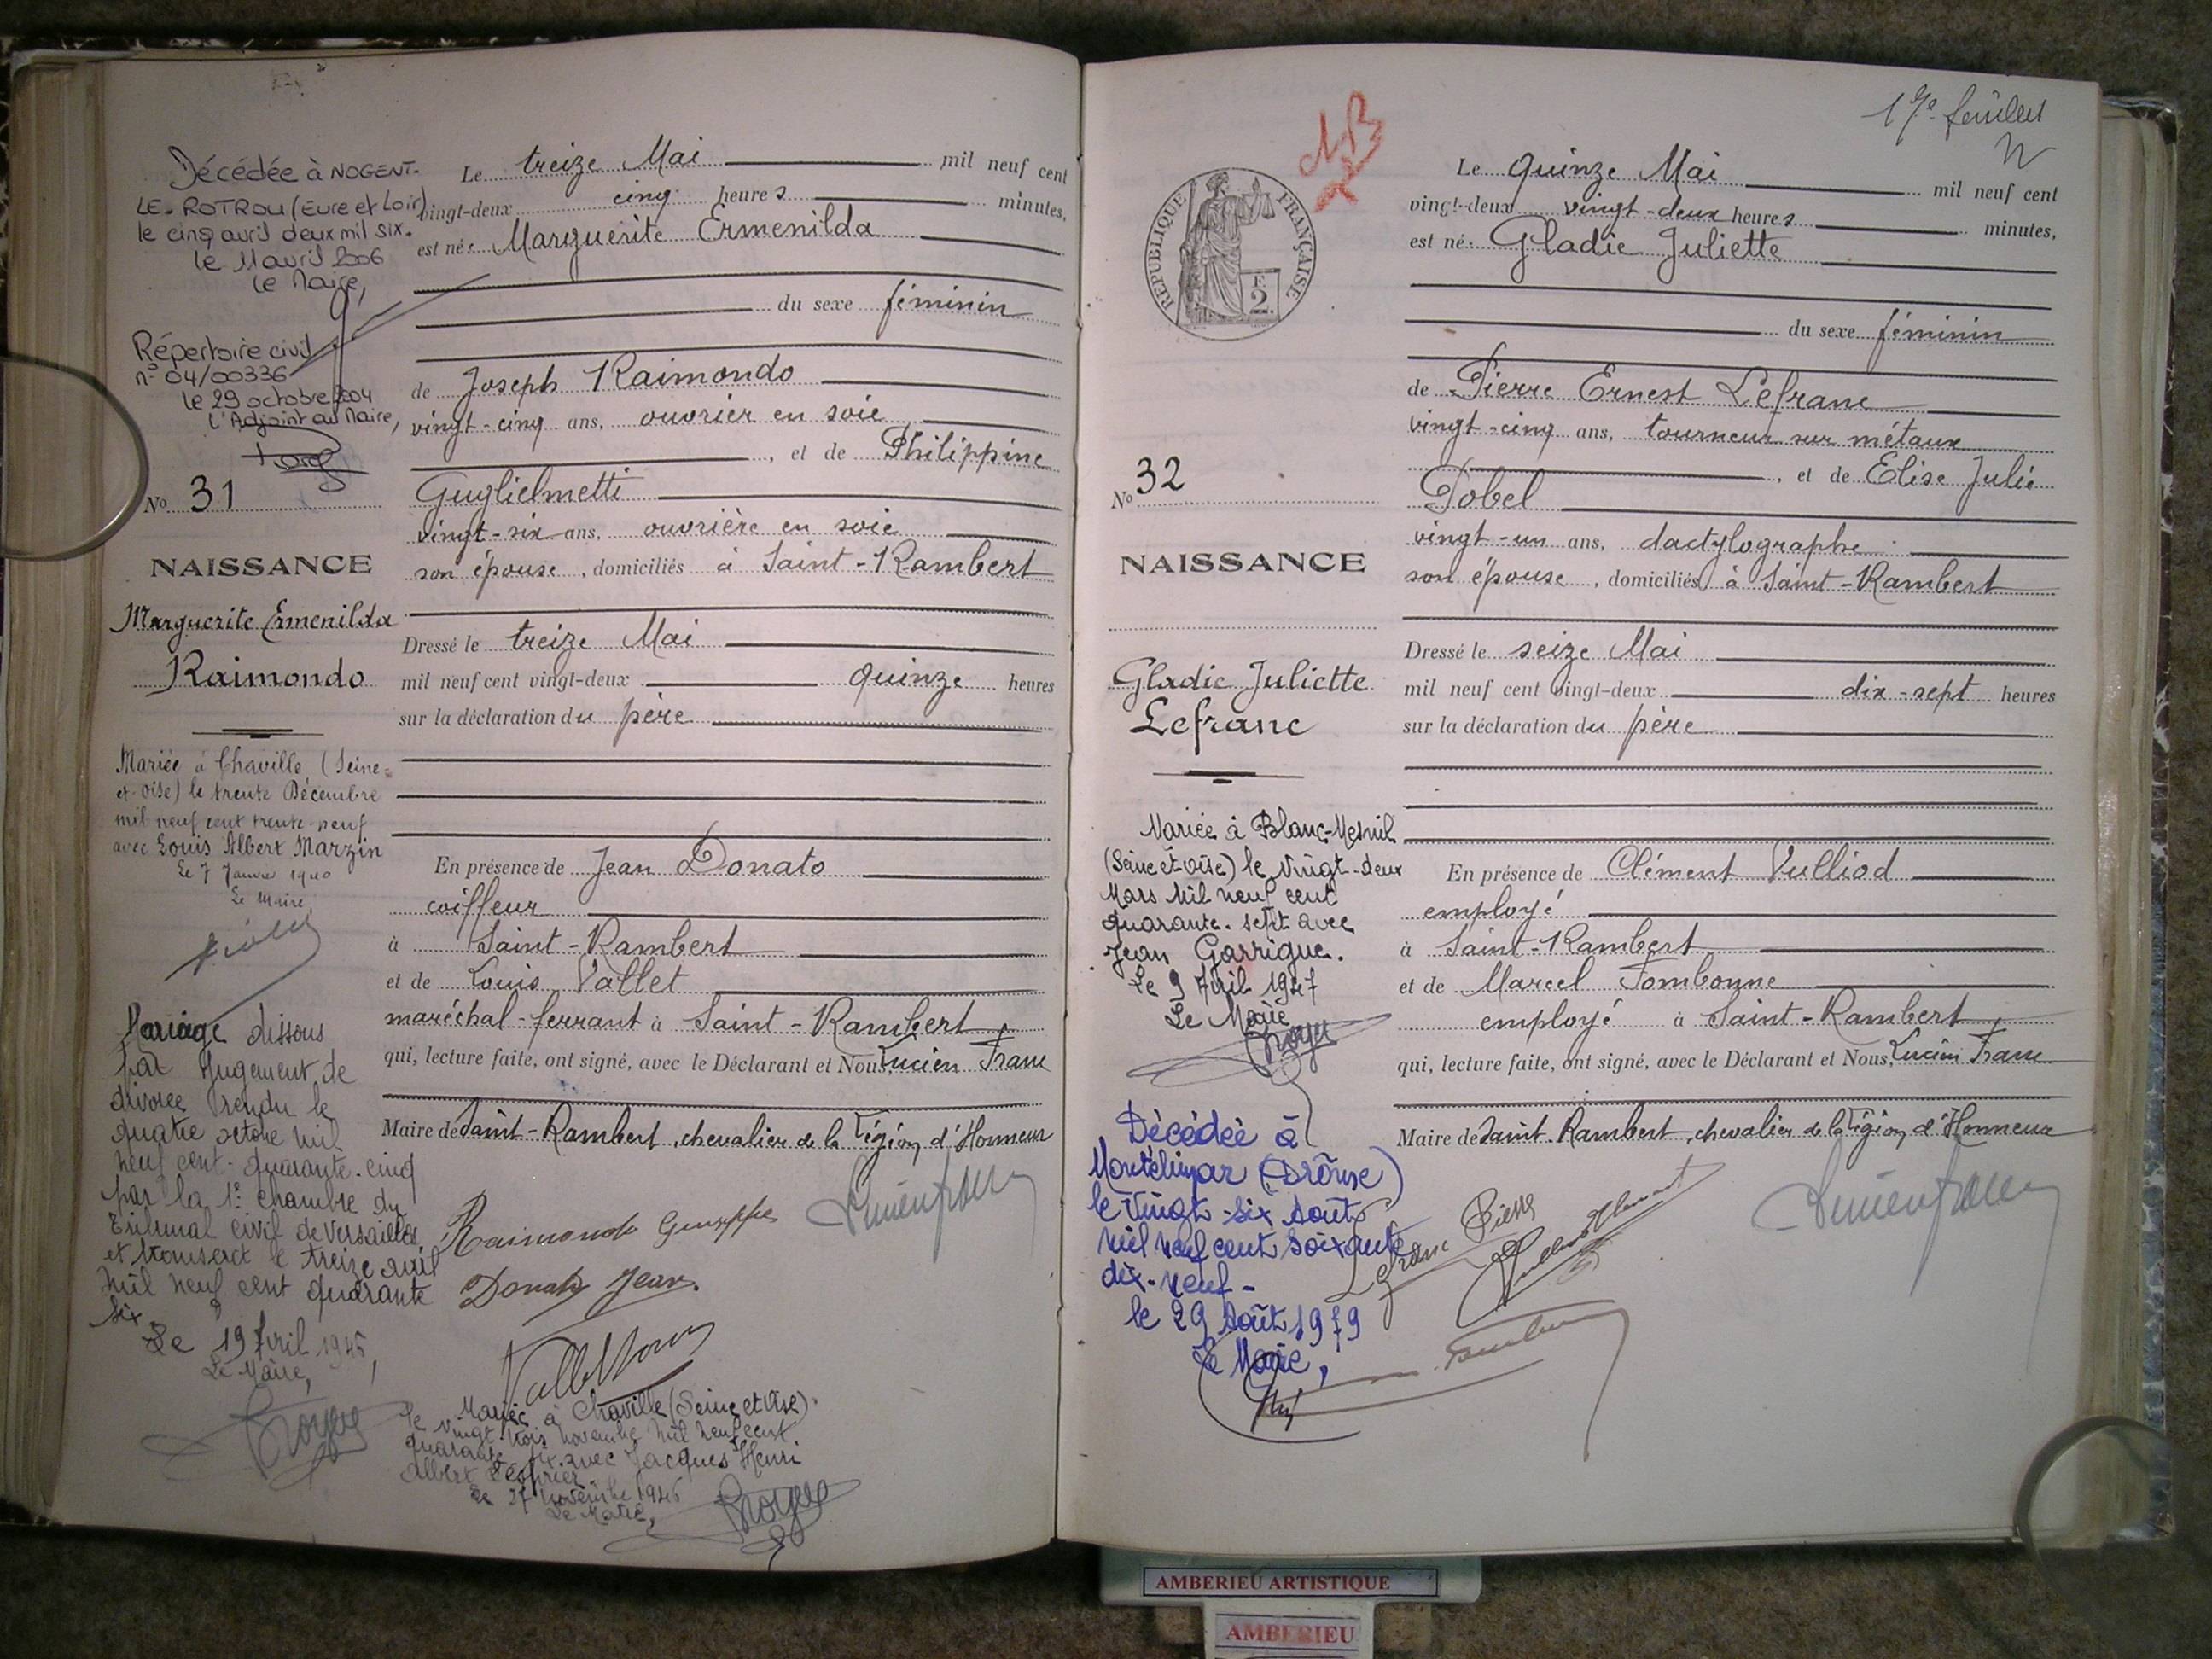 Décédée à NOGENT-
LE-ROTROU (Eure et Loir)
le cinq avril deux mil six.
le 11 avril 2006
Le Maire,
Répertoire civil
n° 04/00336
le 29 octobre 2004
L'Adjoint au Maire,
No 31
NAISSANCE
Marguerite Ermenilda
Raimondo
Mariée à Chaville (Seine-
et-Oise) le trente Décembre
mil neuf cent trente-neuf
avec Louis Albert Marzin
Le 7 Janvier 1940
Le Maire,
Mariage dissous
par Jugement de
divorce rendu le
quatre octobre mil
neuf cent-quarante-cinq
par la 1e chambre du
Tribunal civil de Versailles
et transcrit le treize avril
mil neuf cent quarante
six.
Le 19 Avril 1946,
Le Maire,
Le treize Mai mil neuf cent
vingt-deux cinq heures minutes,
est née Marguerite Ermenilda
du sexe féminin
de Joseph Raimondo
vingt-cinq ans, ouvrier en soie
, et de Philippine
Guglielmetti
vingt-six ans, ouvrière en soie
son épouse, domiciliés à Saint-Rambert
Dressé le treize Mai
mil neuf cent vingt-deux quinze heures
sur la déclaration du père
En présence de Jean Donato
coiffeur
à Saint-Rambert
et de Louis Vallet
maréchal-ferrant à Saint-Rambert
qui, lecture faite, ont signé, avec le Déclarant et Nous, Lucien Franc
Maire de Saint-Rambert, chevalier de la Légion d'Honneur
Raimondo Giuseppe
Donato Jean.
Mariée à Chaville (Seine et Oise)
le vingt-trois novembre mil neuf cent
quarante six avec Jacques Henri
Albert
Le 27 novembre 1946
Le Maire,
17e feuillet
Le quinze Mai mil neuf cent
vingt-deux vingt-deux heures minutes,
est née Gladie Juliette
du sexe féminin
de Pierre Ernest Lefranc
vingt-cinq ans, tourneur sur métaux
, et de Elise Julie
Pobel
vingt-un ans, dactylographe
son épouse, domiciliés à Saint-Rambert
Dressé le seize Mai
mil neuf cent vingt-deux dix-sept heures
sur la déclaration du père
En présence de Clément Vulliod
employé
à Saint-Rambert
et de Marcel Tombonne
employé à Saint-Rambert
qui, lecture faite, ont signé, avec le Déclarant et Nous, Lucien Franc
Maire de Saint-Rambert, chevalier de la Légion d'Honneur
RÉPUBLIQUE FRANÇAISE
F
2
No 32
NAISSANCE
Gladie Juliette
Lefranc
Mariée à Blanc-Mesnil
(Seine et Oise) le vingt-deux
Mars mil neuf cent
quarante-sept avec
Jean Garrigue.
Le 9 Avril 1947
Le Maire
Décédée à
Montélimar (Drôme)
le vingt-six Août
mil neuf cent soixante
dix-neuf-
le 29 Août 1979
Le Maire,
Lefranc Pierre
AMBERIEU ARTISTIQUE
AMBERIEU